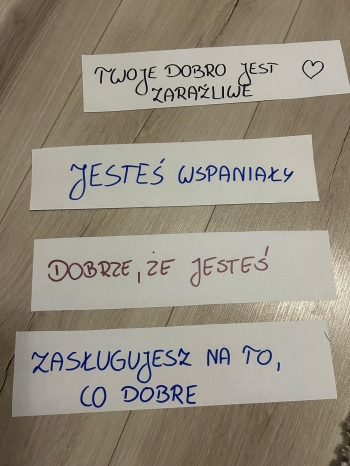 TWOJE DOBRO JEST
ZARAŹLIWE
JESTEŚ WSPANIAŁY
DOBRZE, ŻE JESTEŚ
ZASŁUGUJESZ NA TO,
CO DOBRE